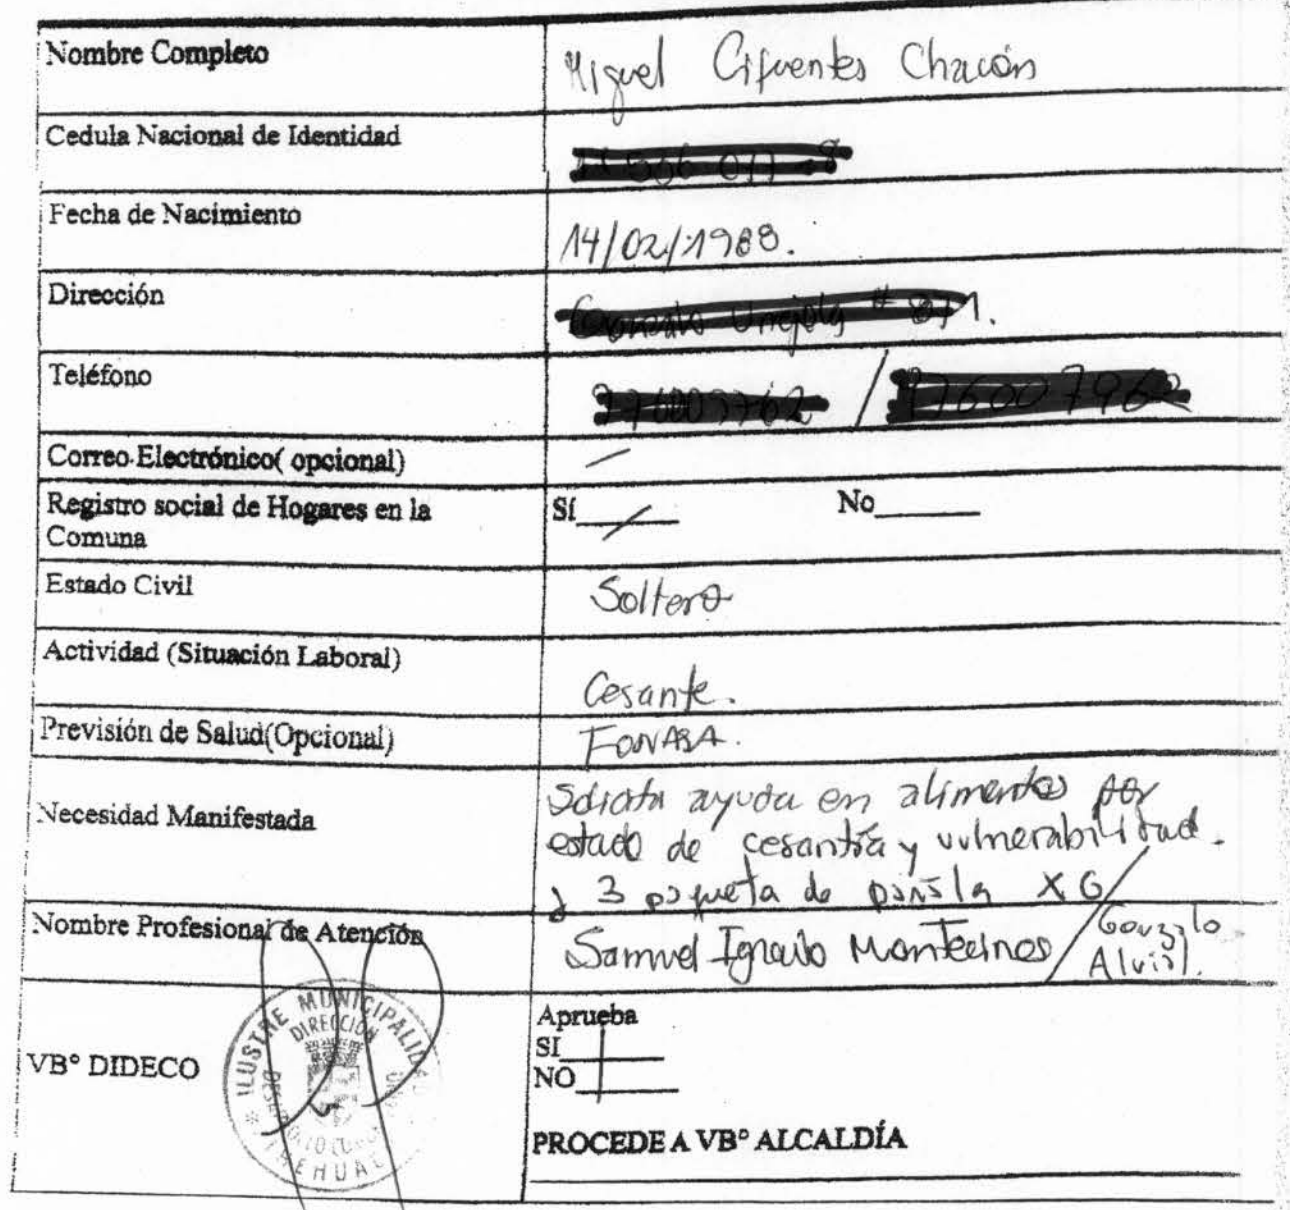 Nombre Completo
Miguel Cifuentes Chacón
Cedula Nacional de Identidad
Fecha de Nacimiento
14/02/1988.
Dirección
Teléfono
/
Correo Electrónico( opcional)
Registro social de Hogares en la
Comuna
Sí No
Estado Civil
Soltero
Actividad (Situación Laboral)
Cesante.
Previsión de Salud(Opcional)
FONASA.
Necesidad Manifestada
Solicita ayuda en alimentos por
estado de cesantía y vulnerabilidad.
y 3 paqueta de XG
Nombre Profesional de Atención
Samuel Ignacio Montecinos / Gonzalo
VB° DIDECO
ILUSTRE MUNICIPALIDAD
DIRECCIÓN
Aprueba
SI
NO
PROCEDE A VB° ALCALDÍA